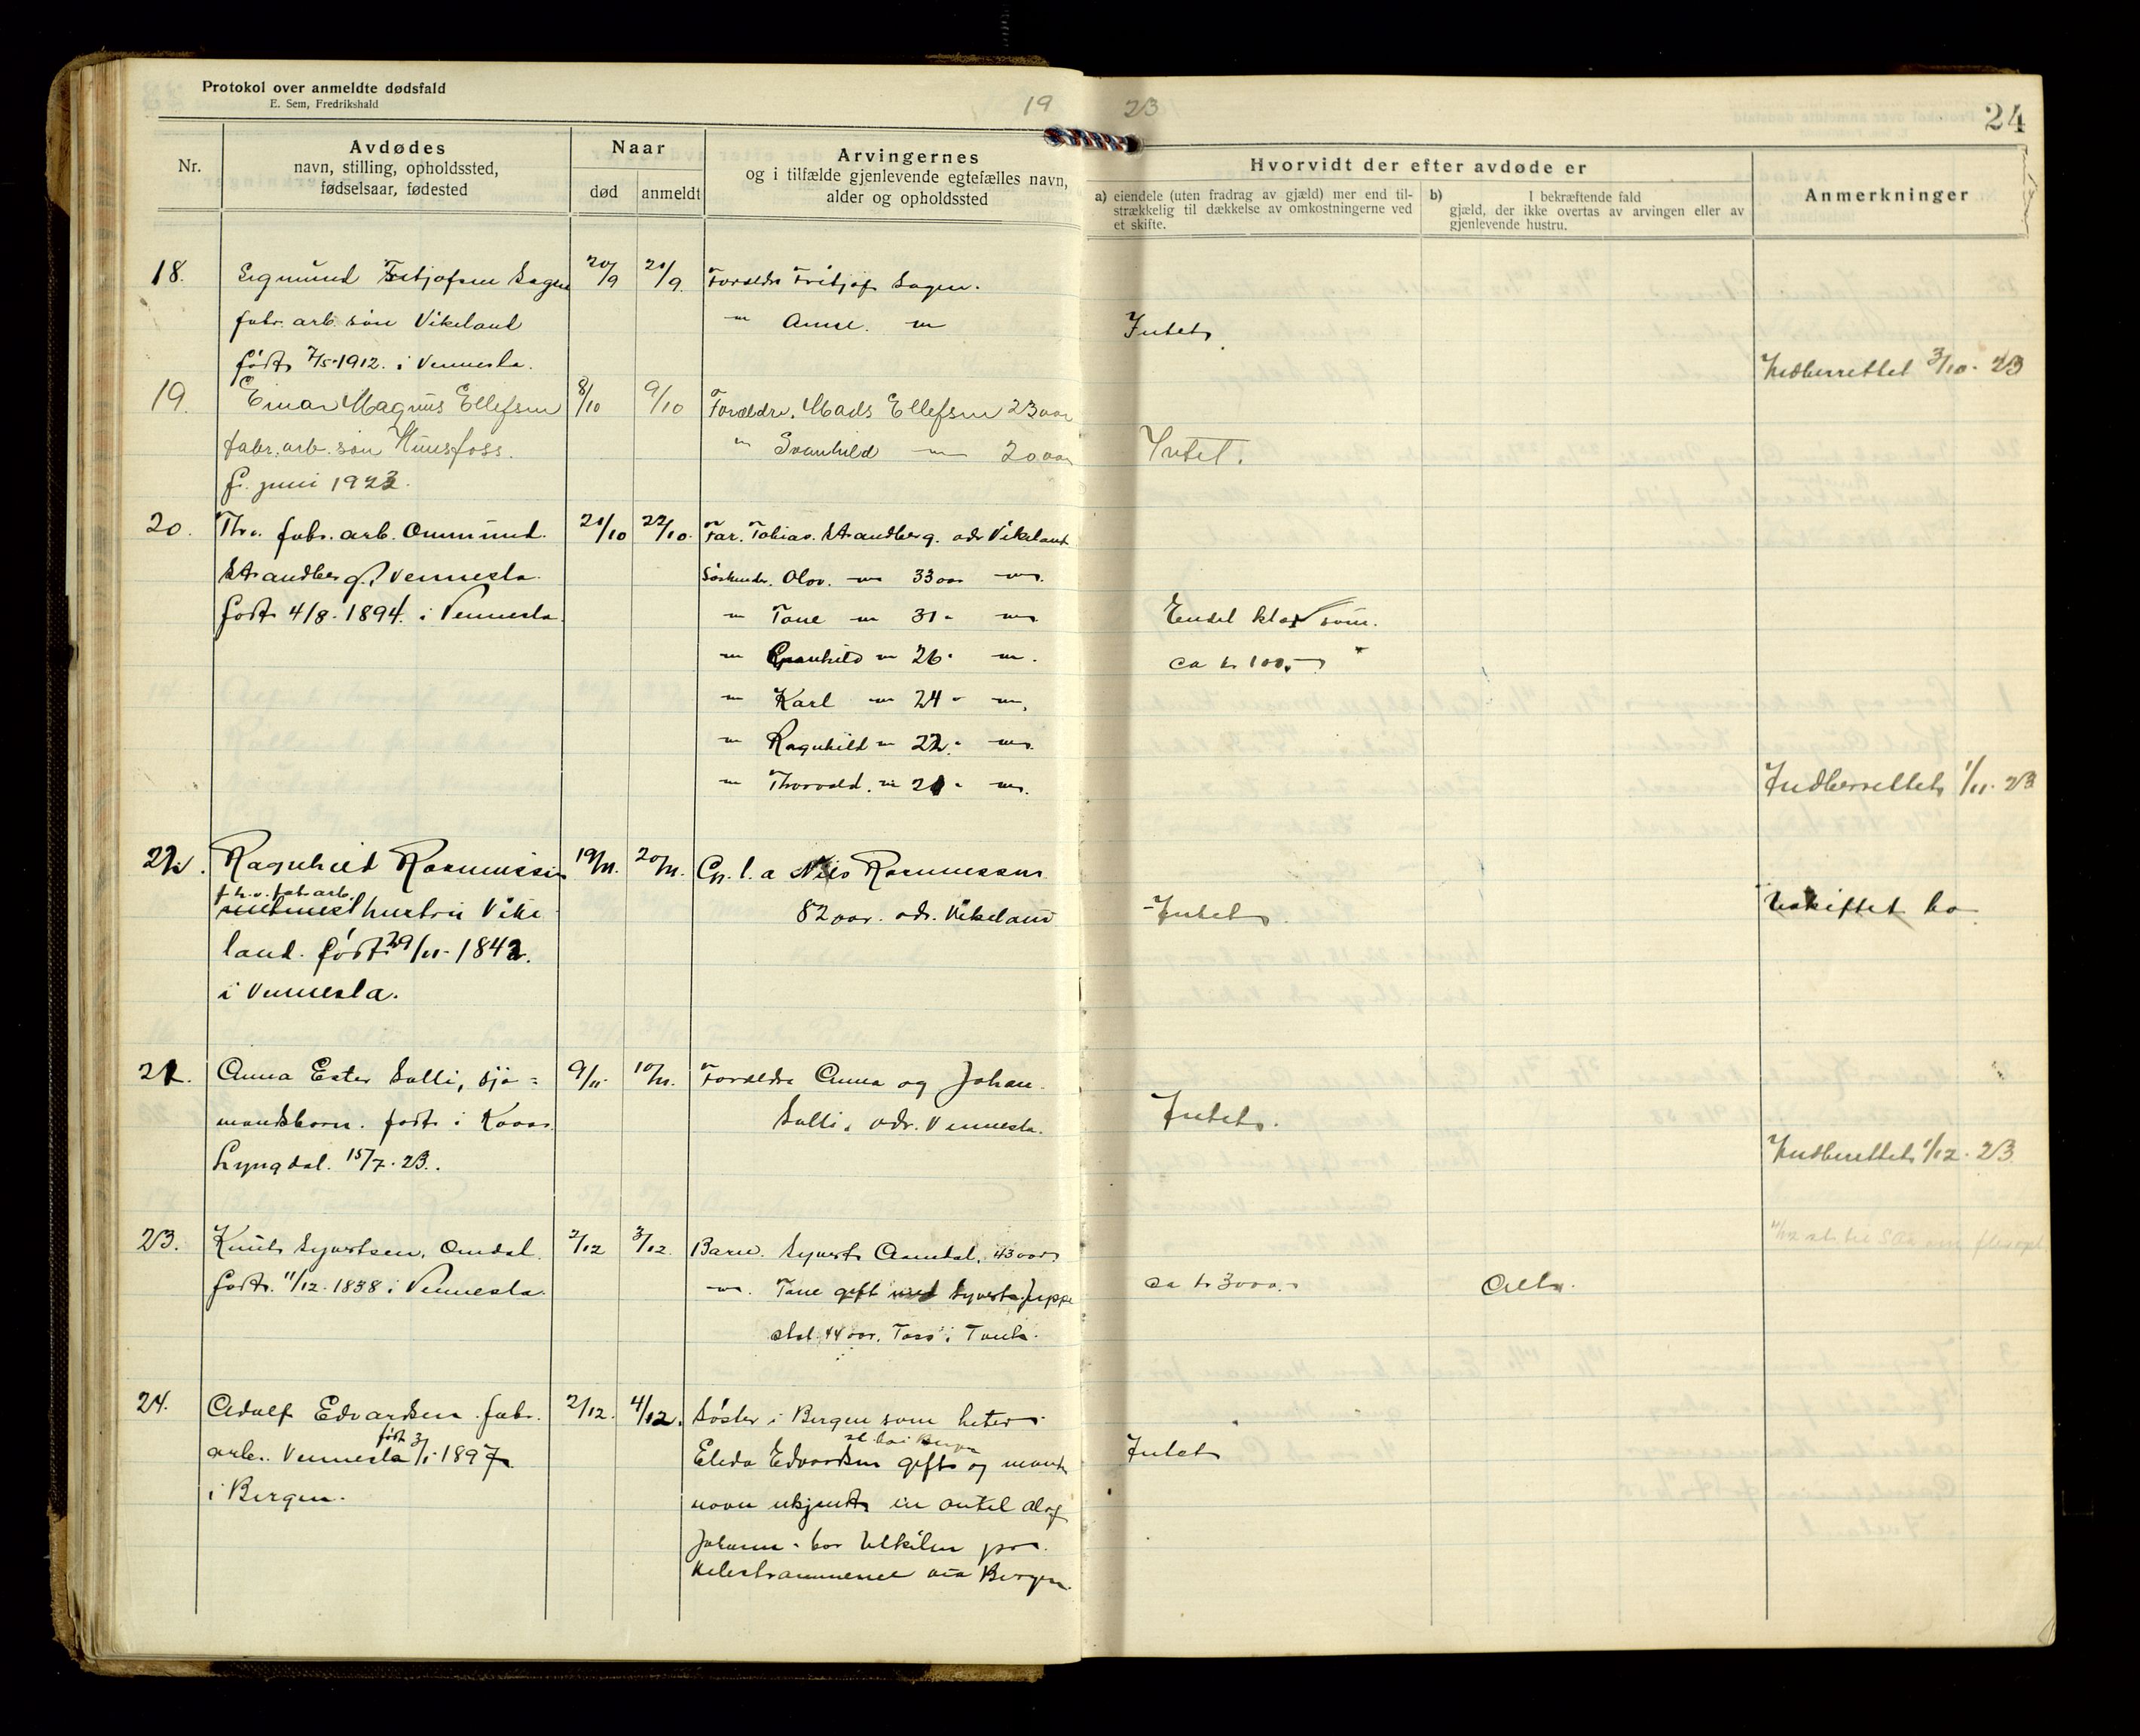 Protokol over anmeldte dødsfald
E. Sem, Fredrikshald
19 23
24
Nr.
Avdødes
navn, stilling, opholdssted,
fødselsaar, fødested
Naar
død
anmeldt
Arvingernes
og i tilfælde gjenlevende egtefælles navn,
alder og opholdssted
Hvorvidt der efter avdøde er
a) eiendele (uten fradrag av gjæld) mer end til-
strækkelig til dækkelse av omkostningerne ved
et skifte.
b) I bekræftende fald
gjæld, der ikke overtas av arvingen eller av
gjenlevende hustru.
Anmerkninger
18. Sigmund Fritjofsen Sagen 20/9 21/9 Foreldre Fritjof Sagen.
fabr. arb. søn Vikeland " Anne. " Intet
født 7/5-1912. i Vennesla.
Indberettet 3/10-23
19. Einar Magnus Ellefsen 8/10 9/10 Forældre. Mads Ellefsen 23 aar
fabr. arb. søn Hunsfoss. " Svanhild " 20 aar Intet.
f. juni 1923.
20. Fhv. fabr. arb. Ommund 21/10 22/10. Far. Tobias Strandberg. adr Vikeland.
Strandberg, Vennesla. Søskende. Olov. " 33 aar "
født 4/8-1894. i Vennesla. " Tone " 31 " " Endel klær som.
" " 26 " " ca kr 100,-
" Karl " 24 " "
" Ragnhild " 22 " "
" Thorvald. " 21 " "
Indberettet 1/11-23
22. Ragnhild Rasmussen 19/11. 20/11. Gr. l. a Nils Rasmussen
fhv. fabr arb.
hustru Vike 82 aar. adr. Vikeland Intet Uskiftet bo
land. født 29/11-1842.
i Vennesla.
21. Anna Ester Salli, sjø- 9/11 10/11. Foreldre Anna og Johan
mandsbarn. født i Kvaas Salli, adr. Vennesla. Intet.
Lyngdal. 15/7-23.
Indberettet 1/12-23
23. Knut Syvertsen, Omdal 2/12 3/12. Barn. Syvert Aamdal, 43 aar
født. 11/12-1838 i Vennesla. " Tone gift med Syvert Jeppe ca kr 3000.- Alt.
stol 44 aar,
24. Adolf Edvardsen fabr. 2/12. 4/12. Søster i Bergen som heter
født
arb. Vennesla 3/1-1897 Elida Edvardsen gift og mands Intet
i Bergen. navn ukjendt en onkel Olaf
Johann bor
via Bergen.